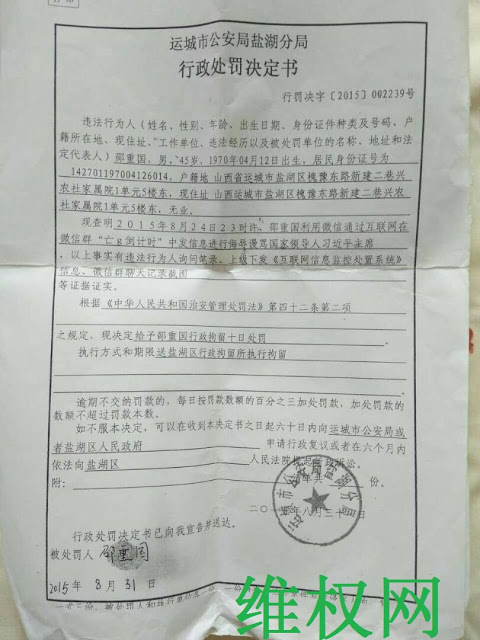 运城市公安局盐湖分局
行政处罚决定书
行罚决字〔2015〕002239号
违法行为人（姓名、性别、年龄、出生日期、身份证件种类及号码、户
籍所在地、现住址、工作单位、违法经历以及被处罚单位的名称、地址和法
定代表人）邵重国，男，45岁，1970年04月12日出生，居民身份证号为
142701197004126014，户籍地 山西省运城市盐湖区槐豫东路新建二巷兴
农社家属院1单元5楼东，现住址 山西运城市盐湖区槐豫东路新建二巷兴农
社家属院1单元5楼东，无业。
现查明2015年8月24日23时许，邵重国利用微信通过互联网在
微信群“亡g倒计时”中发信息进行侮辱谩骂国家领导人习近平主席
，以上事实有违法行为人询问笔录、上级下发《互联网信息监控处置系统》
信息、微信群聊天记录截图
等证据证实。
根据《中华人民共和国治安管理处罚法》第四十二条第二项
之规定，现决定给予邵重国行政拘留十日处罚
执行方式和期限送盐湖区行政拘留所执行拘留
逾期不交纳罚款的，每日按罚款数额的百分之三加处罚款，加处罚款的
数额不超过罚款本数。
如不服本决定，可以在收到本决定之日起六十日内向运城市公安局或
者盐湖区人民政府 申请行政复议或者在六个月内
依法向盐湖区 人民法院提起行政诉讼。
附： 份。
运城市公安局盐湖分局
二〇 年八月三十
行政处罚决定书已向我宣告并送达。
被处罚人 邵重国
2015年 8月 31日
维权网